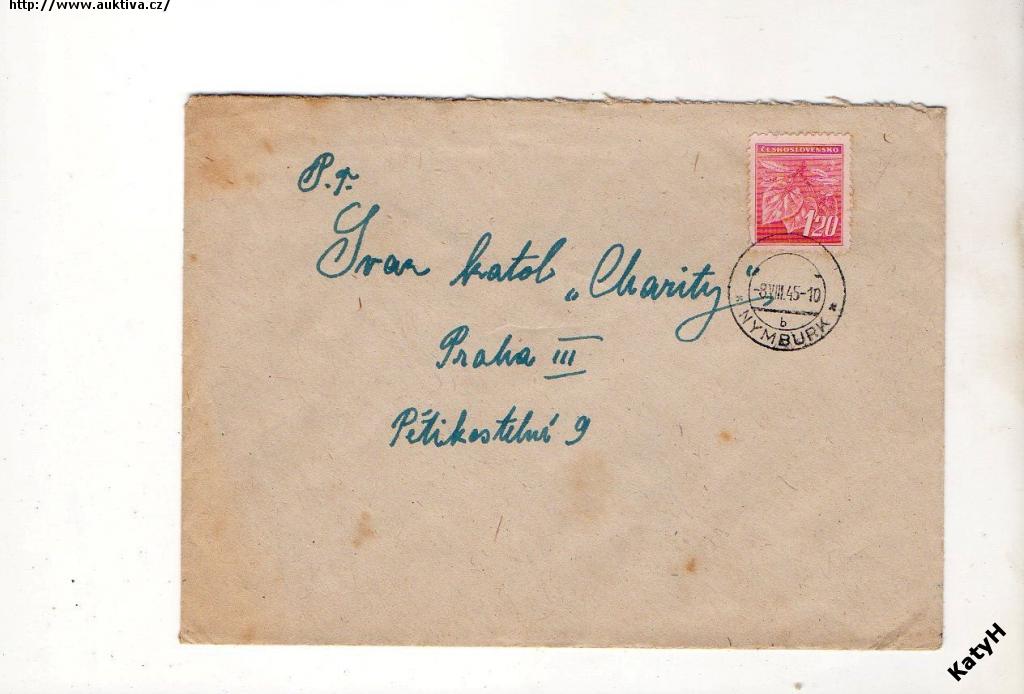 http://www.auktiva.cz/
ČESKOSLOVENSKO
1.20
P.T.
Svaz katol „Charity“
-8.VIII.45-10
b
* NYMBURK *
Praha III
Pětikostelní 9
KatyH